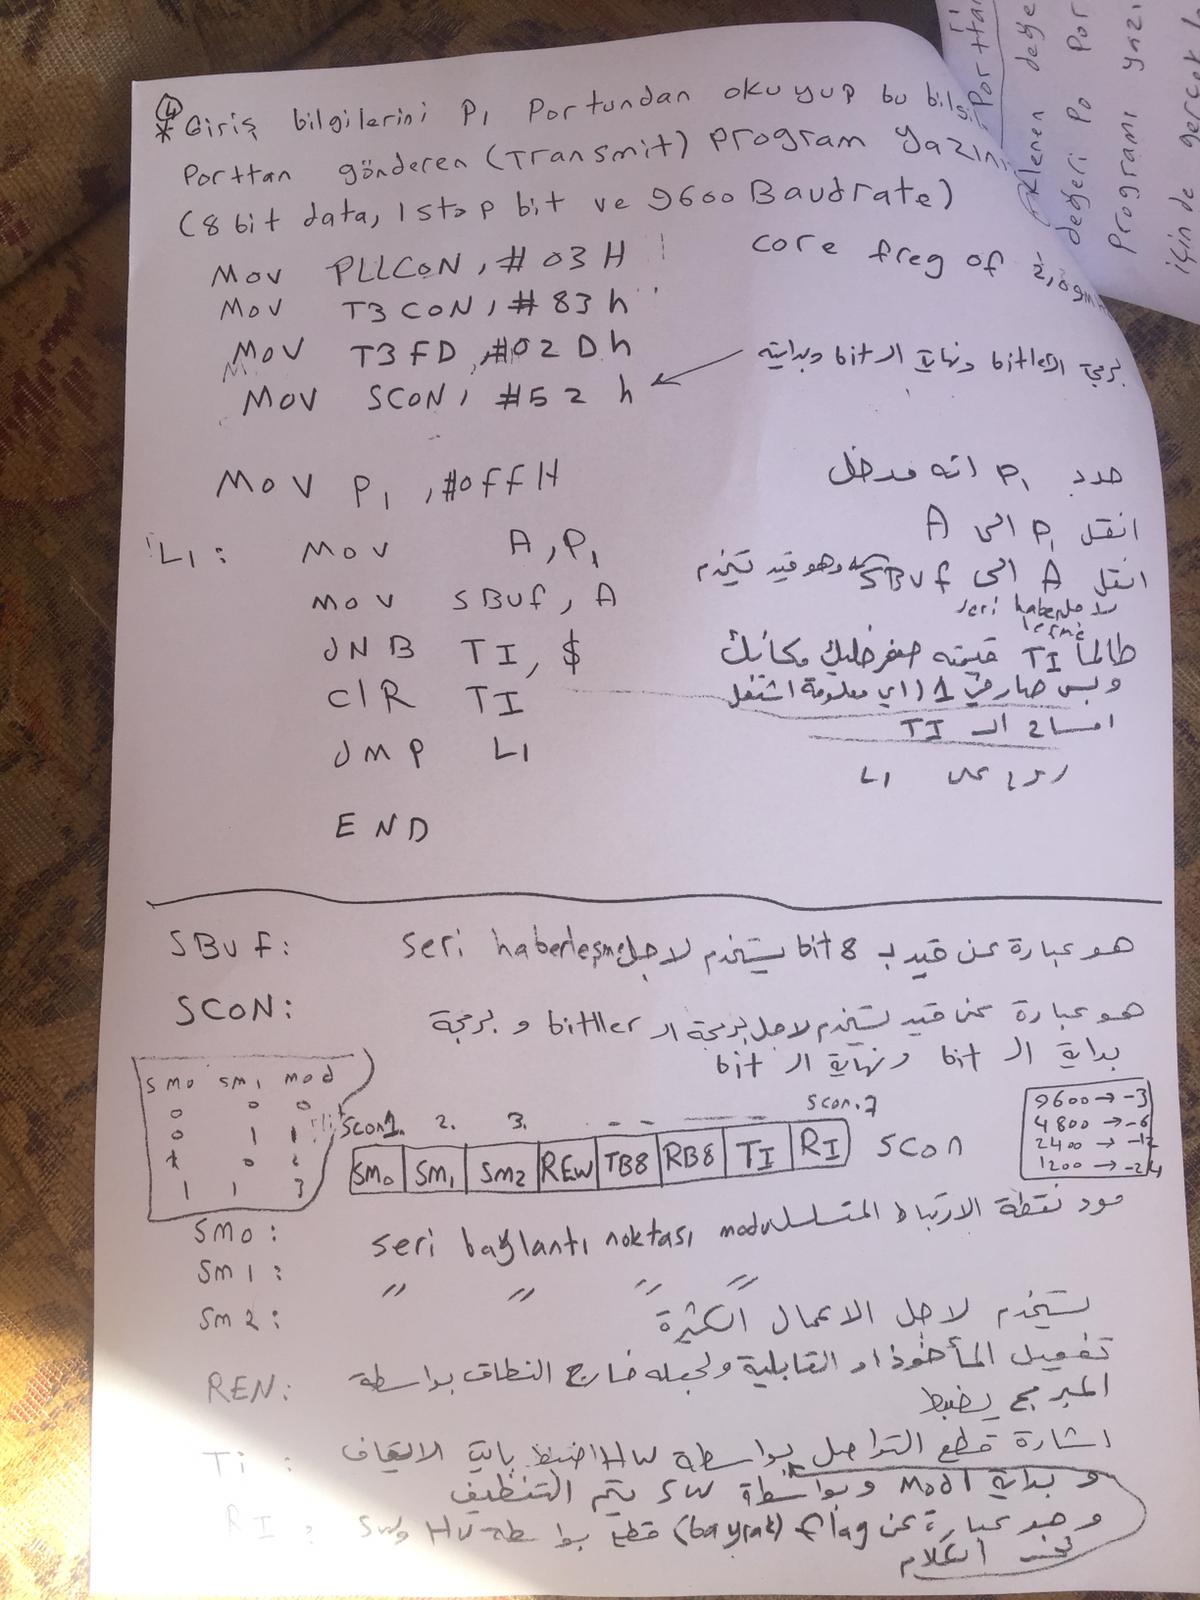 ④
* Giriş bilgilerini P1 Portundan okuyup bu
Porttan gönderen (Transmit) program yazın
(8 bit data, 1 stop bit ve 9600 Baudrate)
Mov PLLCON, #03H core freq of
Mov T3CON, #83h
Mov T3FD, #02Dh
Mov SCON, #52h برمجة الـ bitler ونهاية الـ bit وبدايته
Mov P1, #0ffH حدد P1 انه مدخل
L1: Mov A, P1 انقل P1 الى A
Mov SBuf, A انقل A الى SBuf وهو قيد يستخدم
لاجل seri haberleşme
JNB TI, $ طالما TI قيمته صفر خليك مكانك
ClR TI وبس صار في 1 (اي معلومة اشتغل
امساح الـ TI
JMP L1 L1
END
SBuf: هو عبارة عن قيد بـ 8 bit يستخدم لاجل seri haberleşme
SCON: هو عبارة عن قيد يستخدم لاجل برمجة الـ bitller و برمجة
بداية الـ bit ونهاية الـ bit
SM0 SM1 mod
0 0 0
0 1 1
1 0 2
1 1 3
Scon1. 2. 3. - - - - - Scon.7
SM0 SM1 SM2 REN TB8 RB8 TI RI SCON
9600 → -3
4800 → -6
2400 → -12
1200 → -24
مود نقطة الارتباط المتسلسل
SM0: seri bağlantı noktası modu
SM1: " " " "
SM2: يستخدم لاجل الاعمال الكثيرة
REN: تفعيل المأخوذ او القابلية ولجعله خارج النطاق بواسطة
المبرمج يضبط
Ti: اشارة قطع التواصل بواسطة HW اضبط بايت الايقاف
و بداية Mod1 وبواسطة SW يتم التنظيف
RI: وهو عبارة عن flag (bayrak) قطع بواسطة HW و SW
نفس الكلام